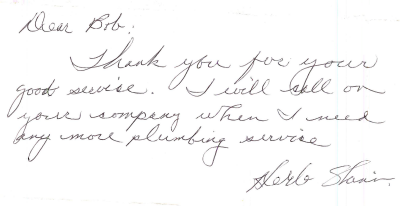 Dear Bob:
Thank you for your
good service. I will call on
your company when I need
any more plumbing service
Herb